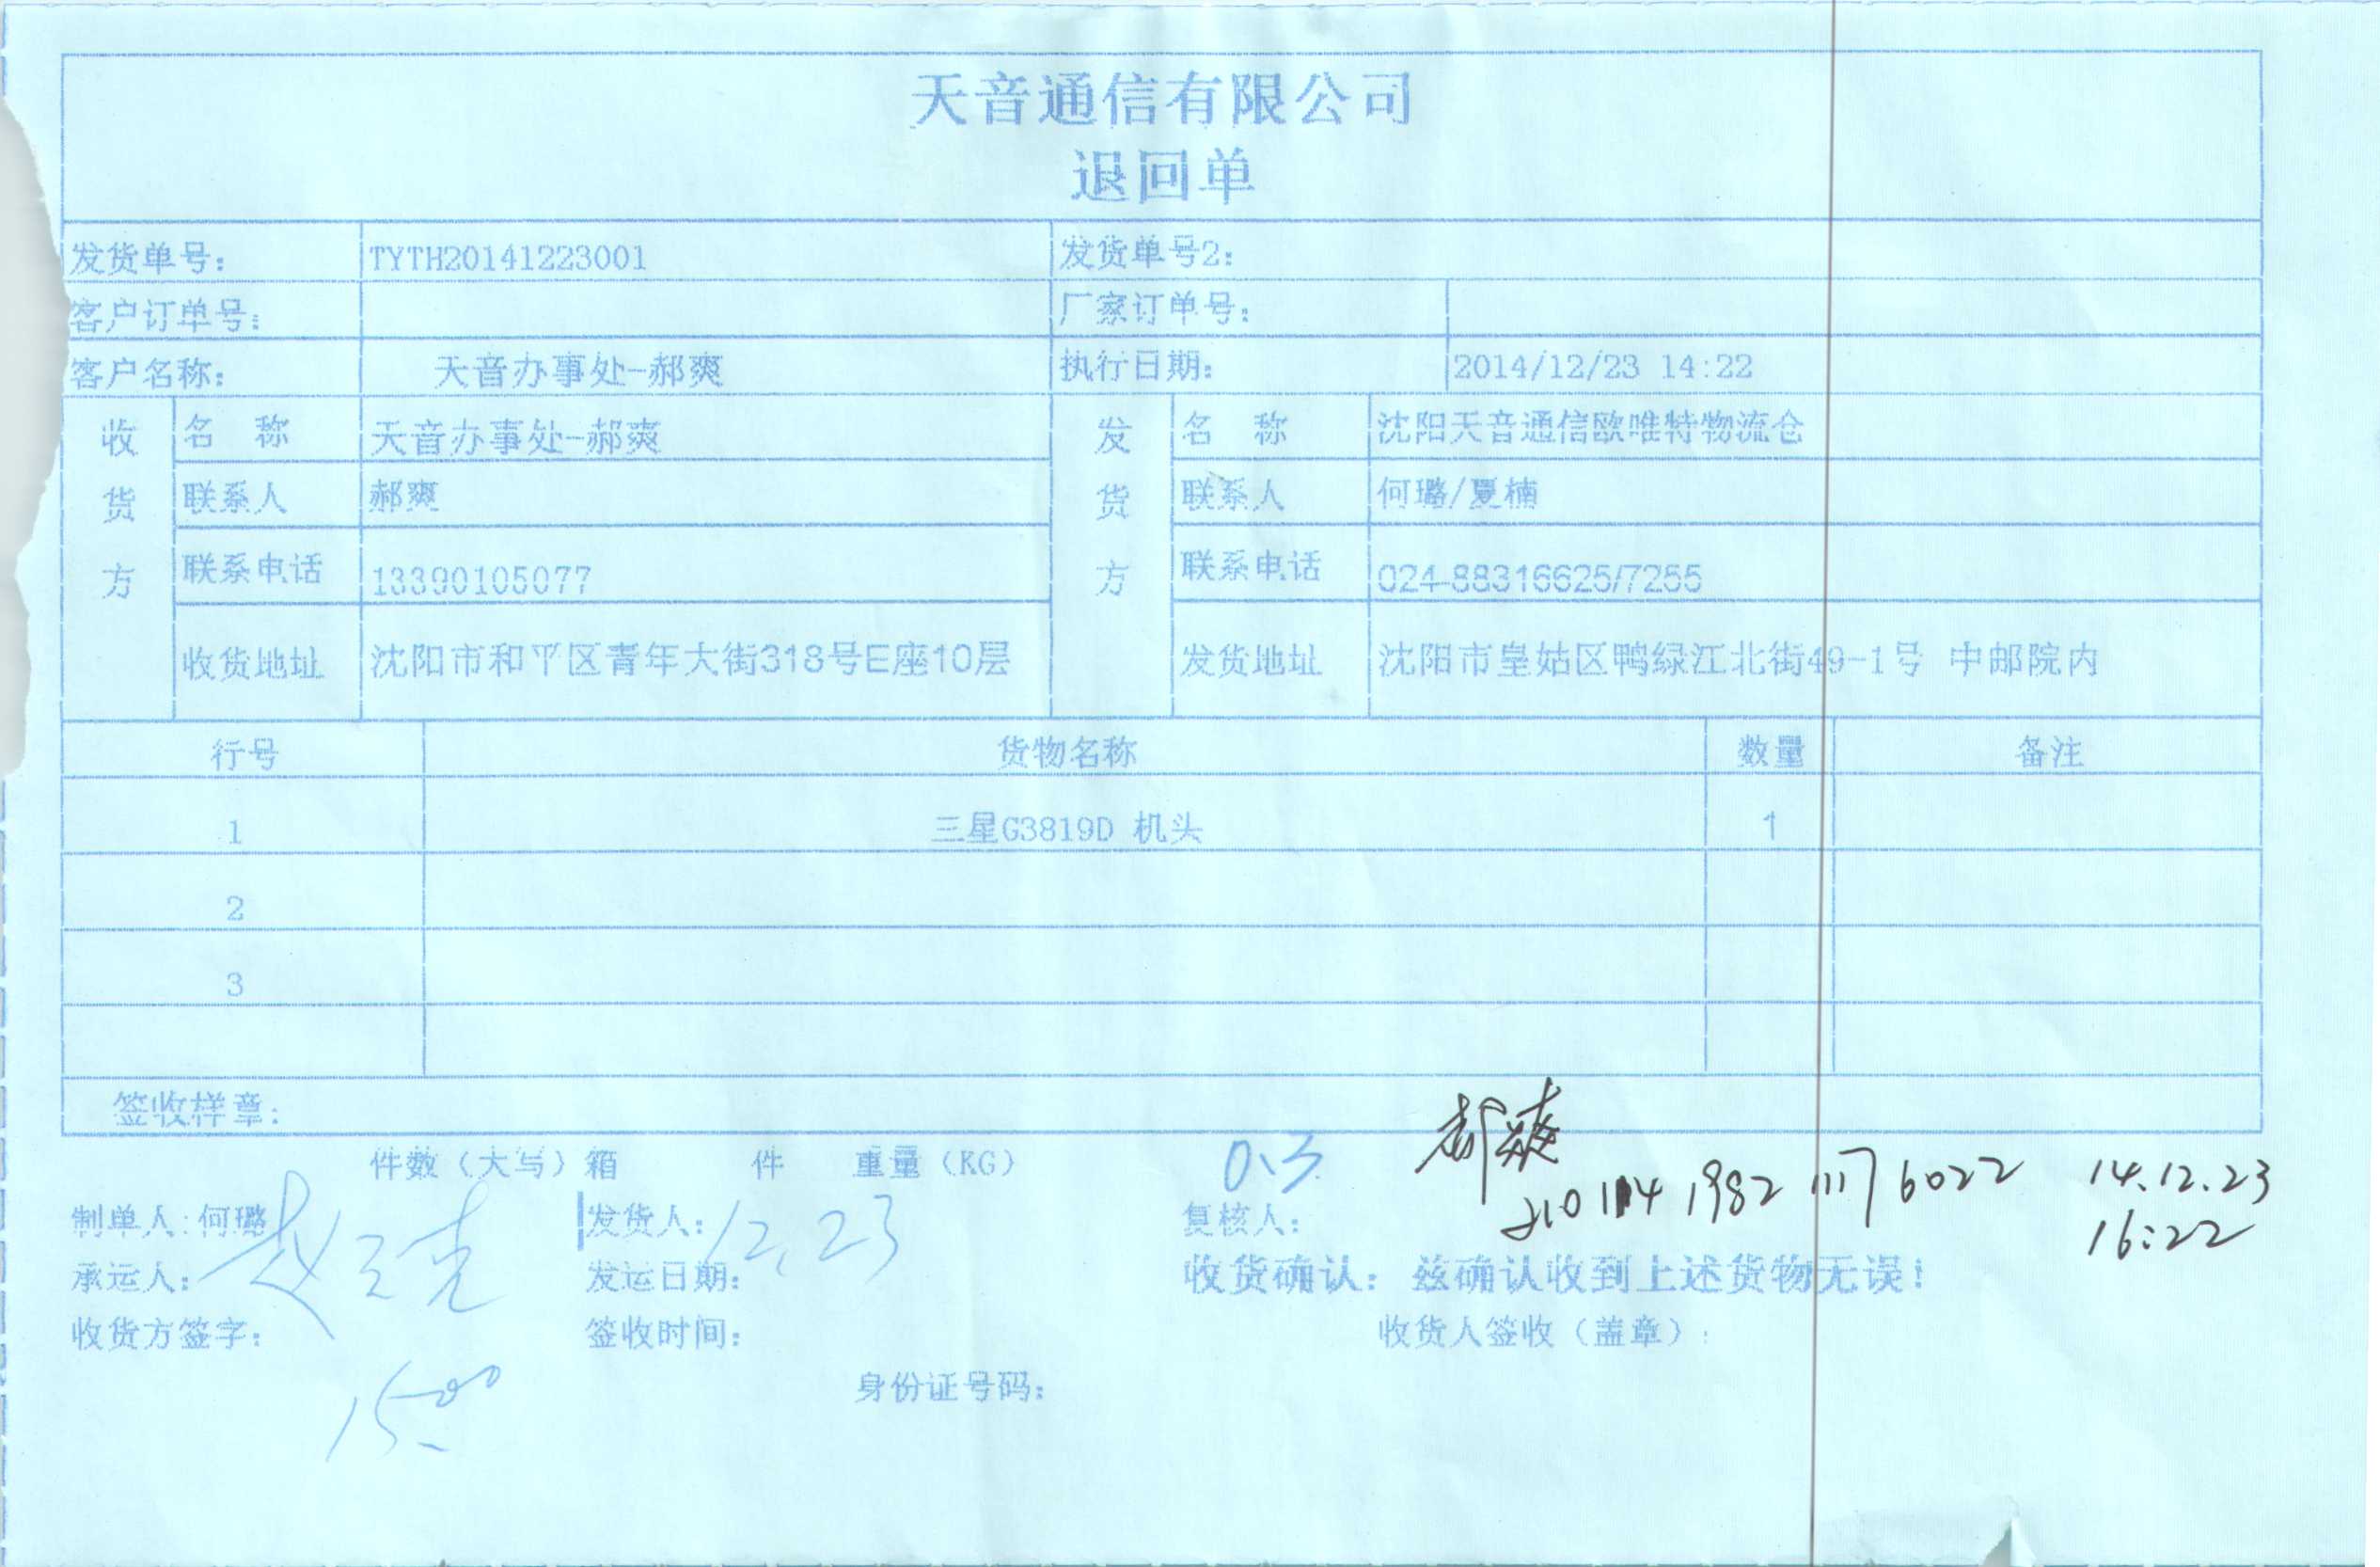 天音通信有限公司
退回单
发货单号: TYTH20141223001 发货单号2:
客户订单号: 厂家订单号:
客户名称: 天音办事处-郝爽 执行日期: 2014/12/23 14:22
收货方 发货方
名 称 天音办事处-郝爽 名 称 沈阳天音通信欧唯特物流仓
联系人 郝爽 联系人 何璐/夏楠
联系电话 13390105077 联系电话 024-88316625/7255
收货地址 沈阳市和平区青年大街318号E座10层 发货地址 沈阳市皇姑区鸭绿江北街49-1号 中邮院内
行号 货物名称 数量 备注
1 三星G3819D 机头 1
2
3
签收样章:
郝爽
件数（大写）箱 件 重量（KG） 0.3
210114198211176022 14.12.23
16:22
制单人:何璐 发货人: 12.23 复核人:
承运人: 发运日期: 收货确认: 兹确认收到上述货物无误!
收货方签字: 签收时间: 收货人签收（盖章）:
15:00 身份证号码: